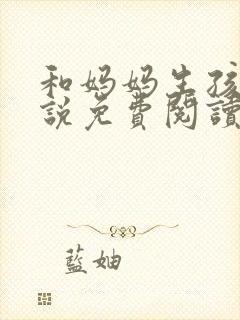 和妈妈生孩
說免費閱讀
藍妯